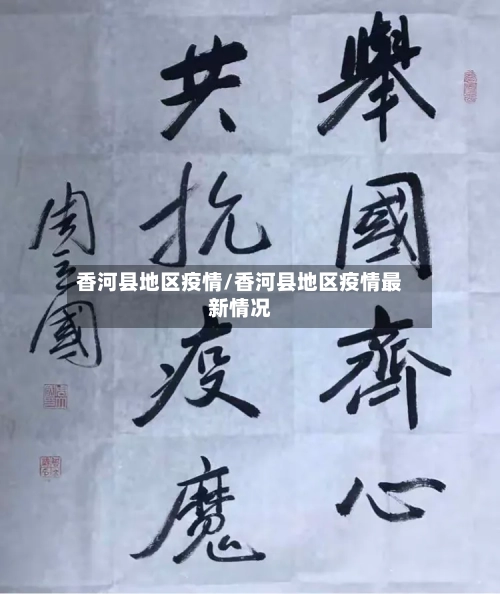 舉國齊心
共抗疫魔
周立國
香河县地区疫情/香河县地区疫情最
新情况